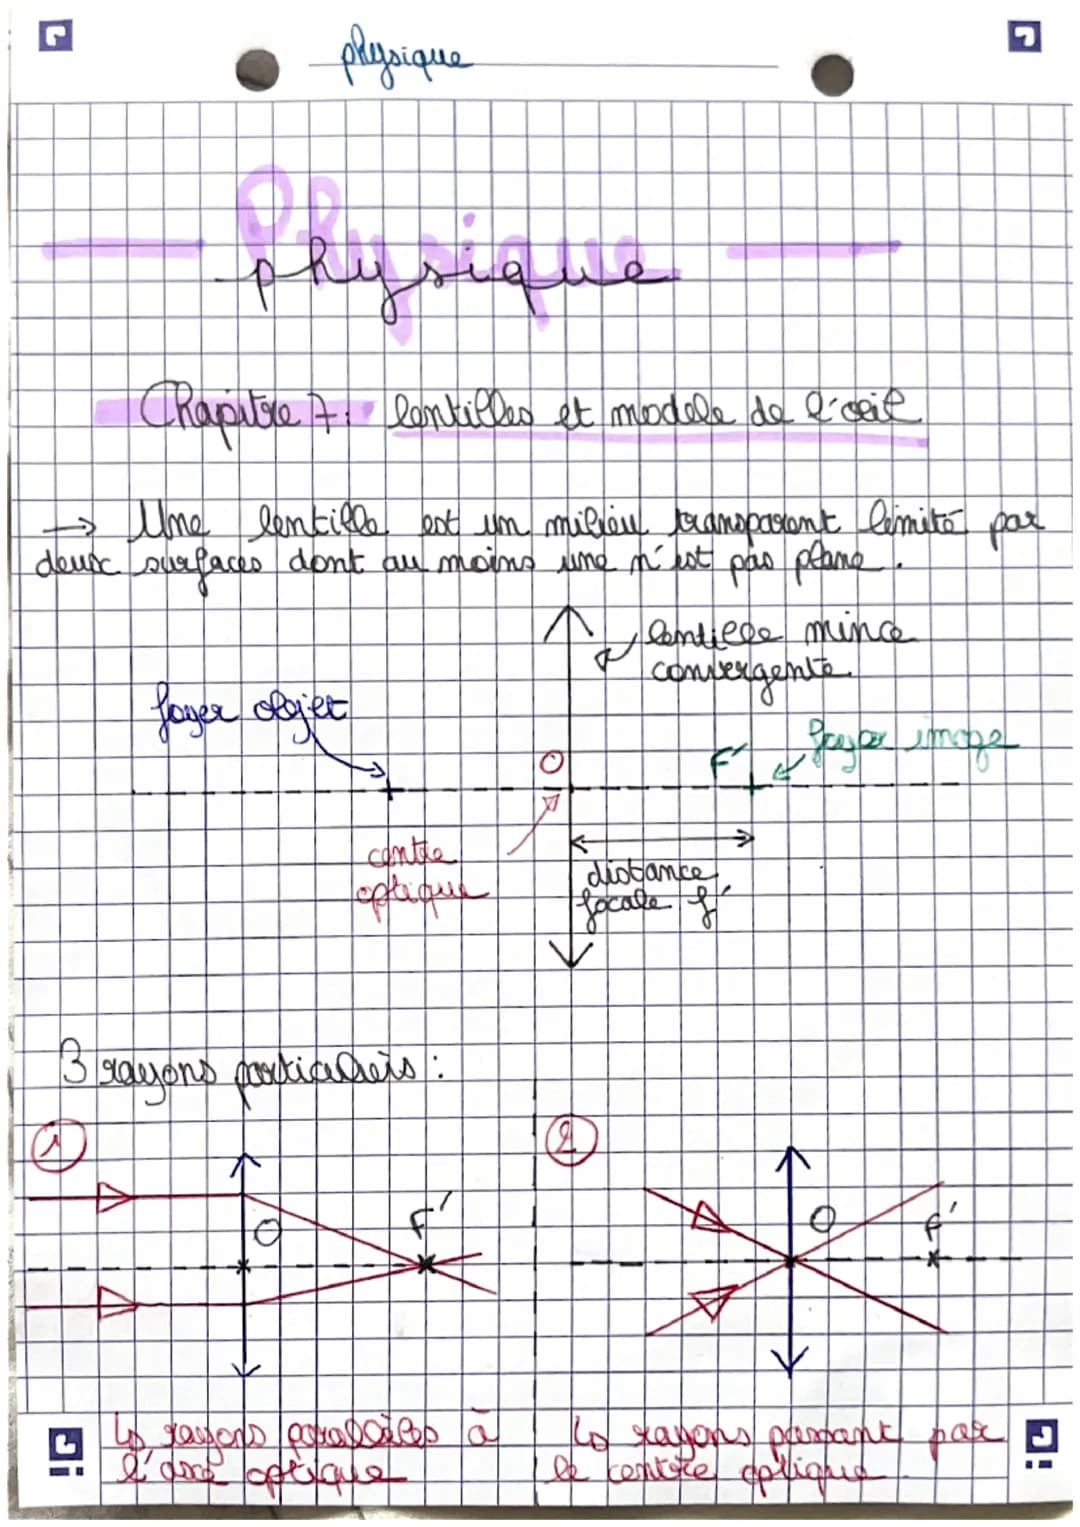 physique
Physique
physique
Chapitre 7 : lentilles et modele de l'œil
→ Une lentille est un milieu transparent limité par
deux surfaces dont au moins une n'est pas plane.
lentille mince
convergente
foyer objet
foyer image
O
F'
centre
optique
distance
focale f'
3 rayons particuliers :
1
2
O
F'
O
F'
↳ rayons parallèles à
l'axe optique
↳ rayons passant par
le centre optique